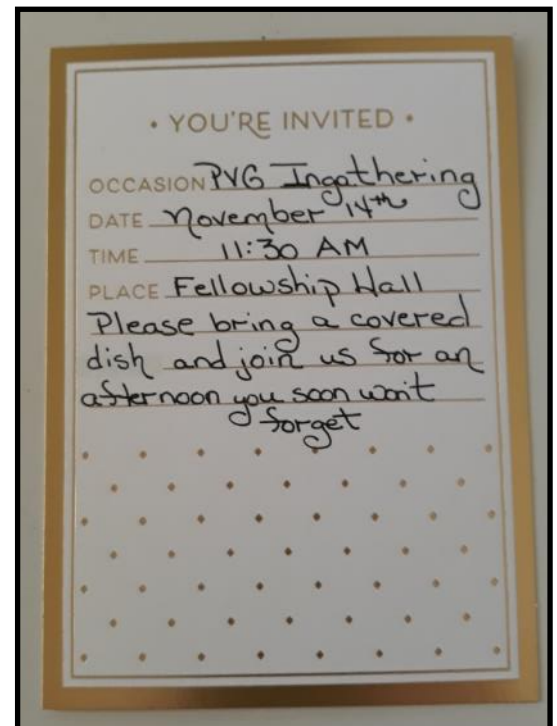 • YOU'RE INVITED •
OCCASION PVG Ingathering
DATE November 14th
TIME 11:30 AM
PLACE Fellowship Hall
Please bring a covered
dish and join us for an
afternoon you soon won't
forget